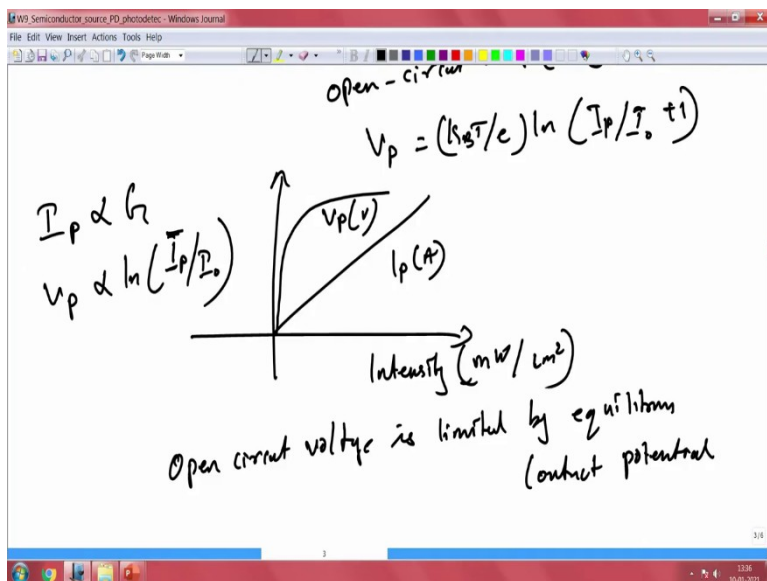 W9_Semiconductor_source_PD_photodetec - Windows Journal
File Edit View Insert Actions Tools Help
Page Width
B I
open-circuit
Vp = (KBT/e) ln (Ip/I0 +1)
Ip ∝ G
Vp ∝ ln (Ip/I0)
Vp(V)
Ip(A)
Intensity (mW/cm²)
Open circuit voltage is limited by equilibrium
contact potential
3/6
3
13:36
10-01-2021